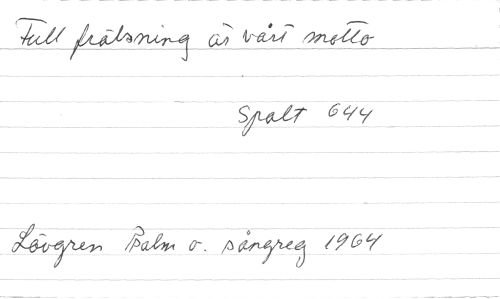 Full frälsning är vårt motto
Spalt 644
Lövgren Psalm o. sångreg 1964